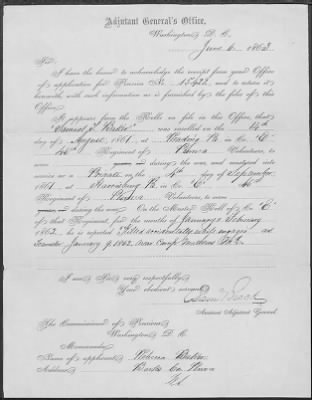 Adjutant General's Office,
Washington, D. C.
June 6, 186
Sir:
I have the honor to acknowledge the receipt from your Office
of application for Pension No. 15422, and to return it
herewith, with such information as is furnished by the files of this
Office.
It appears from the Rolls on file in this Office, that
Samuel Baker was enrolled on the
day of August, 1861, at Reading Pa in Co. "C"
46th Regiment of Penna Volunteers, to serve
during the war, and mustered into
service as a Private on the 4th day of September
1861, at Harrisburg Pa, in Co. "C", 46
Regiment of Penna Volunteers, to serve
during the war. On the Muster Roll of Co. "C"
of that Regiment, for the months of January & February
1862, he is reported "Killed accidentally while engaged
January 9, 1862, near Camp
I am, Sir, very respectfully,
Your obedient servant,
Assistant Adjutant General.
The Commissioner of Pensions,
Washington, D. C.
Memoranda:
Name of applicant, Rebecca Baker
Address, Berks Co Penna